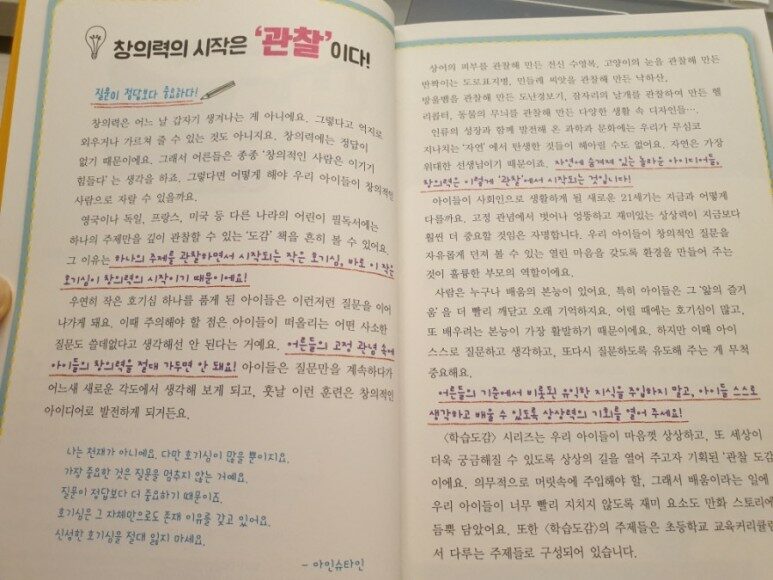 창의력의 시작은 '관찰'이다!
질문이 정답보다 중요하다!
창의력은 어느 날 갑자기 생겨나는 게 아니에요. 그렇다고 억지로
외우거나 가르쳐 줄 수 있는 것도 아니지요. 창의력에는 정답이
없기 때문이에요. 그래서 어른들은 종종 '창의적인 사람은 이기기
힘들다'는 생각을 하죠. 그렇다면 어떻게 해야 우리 아이들이 창의적인
사람으로 자랄 수 있을까요.
영국이나 독일, 프랑스, 미국 등 다른 나라의 어린이 필독서에는
하나의 주제만을 깊이 관찰할 수 있는 '도감' 책을 흔히 볼 수 있어요.
그 이유는 하나의 주제를 관찰하면서 시작되는 작은 호기심, 바로 이 작은
호기심이 창의력의 시작이기 때문이에요!
우연히 작은 호기심 하나를 품게 된 아이들은 이런저런 질문을 이어
나가게 돼요. 이때 주의해야 할 점은 아이들이 떠올리는 어떤 사소한
질문도 쓸데없다고 생각해선 안 된다는 거예요. 어른들의 고정 관념 속에
아이들의 창의력을 절대 가두면 안 돼요! 아이들은 질문을 계속하다가
어느새 새로운 각도에서 생각해 보게 되고, 훗날 이런 훈련은 창의적인
아이디어로 발전하게 되거든요.
나는 천재가 아니에요. 다만 호기심이 많을 뿐이지요.
가장 중요한 것은 질문을 멈추지 않는 거예요.
질문이 정답보다 더 중요하기 때문이죠.
호기심은 그 자체만으로도 존재 이유를 갖고 있어요.
신성한 호기심을 절대 잃지 마세요.
- 아인슈타인
상어의 피부를 관찰해 만든 전신 수영복, 고양이의 눈을 관찰해 만든
반짝이는 도로표지병, 민들레 씨앗을 관찰해 만든 낙하산,
방울뱀을 관찰해 만든 도난경보기, 잠자리의 날개를 관찰하여 만든 헬
리콥터, 동물의 무늬를 관찰해 만든 다양한 생활 속 디자인들….
인류의 성장과 함께 발전해 온 과학과 문화에는 우리가 무심코
지나치는 '자연'에서 탄생한 것들이 헤아릴 수도 없어요. 자연은 가장
위대한 선생님이기 때문이죠. 자연에 숨겨져 있는 놀라운 아이디어들,
창의력은 이렇게 '관찰'에서 시작되는 것입니다!
아이들이 사회인으로 생활하게 될 새로운 21세기는 지금과 어떻게
다를까요. 고정 관념에서 벗어나 엉뚱하고 재미있는 상상력이 지금보다
훨씬 더 중요할 것임은 자명합니다. 우리 아이들이 창의적인 질문을
자유롭게 던져 볼 수 있는 열린 마음을 갖도록 환경을 만들어 주는
것이 훌륭한 부모의 역할이에요.
사람은 누구나 배움의 본능이 있어요. 특히 아이들은 그 '앎의 즐거
움'을 더 빨리 깨닫고 오래 기억하지요. 어릴 때에는 호기심이 많고,
또 배우려는 본능이 가장 활발하기 때문이에요. 하지만 이때 아이
스스로 질문하고 생각하고, 또다시 질문하도록 유도해 주는 게 무척
중요해요.
어른들의 기준에서 비롯된 유익한 지식을 주입하지 말고, 아이들 스스로
생각하고 배울 수 있도록 상상력의 기회를 열어 주세요!
〈학습도감〉 시리즈는 우리 아이들이 마음껏 상상하고, 또 세상이
더욱 궁금해질 수 있도록 상상의 길을 열어 주고자 기획된 '관찰 도감
이에요. 의무적으로 머릿속에 주입해야 할, 그래서 배움이라는 일에
우리 아이들이 너무 빨리 지치지 않도록 재미 요소도 만화 스토리에
듬뿍 담았어요. 또한 〈학습도감〉의 주제들은 초등학교 교육커리큘럼
서 다루는 주제들로 구성되어 있습니다.